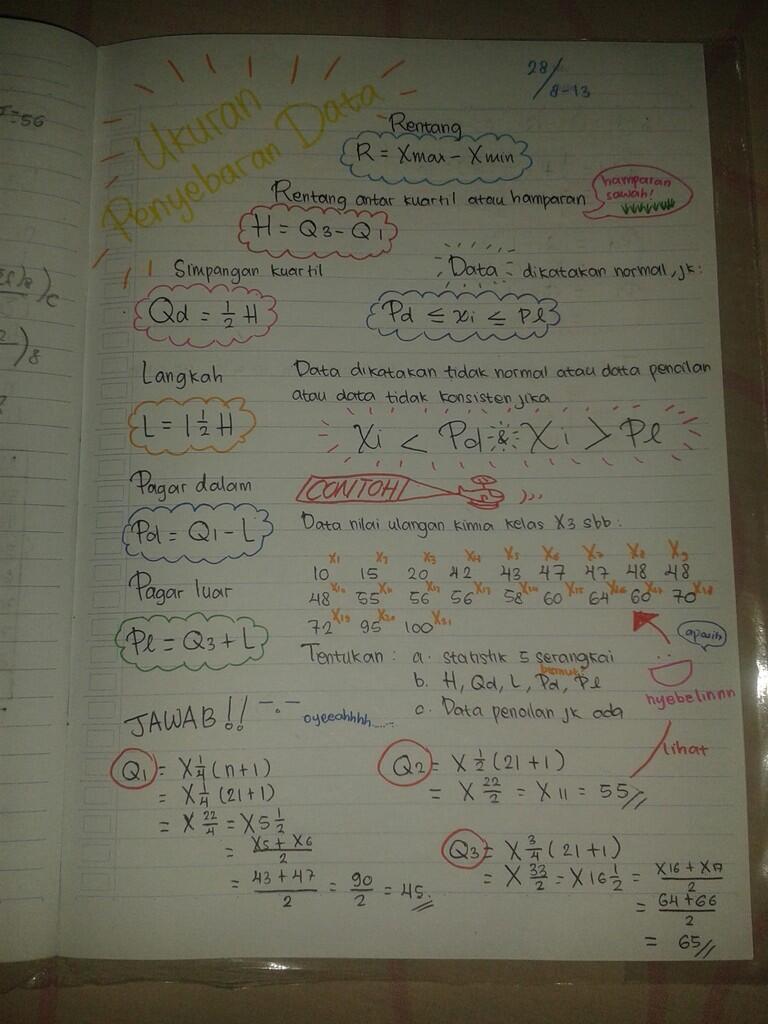 28/8-13
Ukuran
Penyebaran Data
Rentang
R = Xmax - Xmin
Rentang antar kuartil atau hamparan
hamparan sawah!
H = Q3 - Q1
Simpangan kuartil
Qd = 1/2 H
Data dikatakan normal, jk:
Pd ≤ xi ≤ Pl
Langkah
L = 1 1/2 H
Data dikatakan tidak normal atau data pencilan
atau data tidak konsisten jika
Xi < Pd & Xi > Pl
Pagar dalam
Pd = Q1 - L
Pagar luar
Pl = Q3 + L
CONTOH
Data nilai ulangan kimia kelas X3 sbb:
X1 X2 X3 X4 X5 X6 X7 X8 X9
10 15 20 42 43 47 47 48 48
48 X10 55 X11 56 X12 56 X13 58 X14 60 X15 64 X16 60 X17 70 X18
72 X19 95 X20 100 X21
Tentukan: a. statistik 5 serangkai
b. H, Qd, L, Pd, Pl
c. Data pencilan jk ada
apasih
nyebelinnn
lihat
JAWAB!! -.- oyeeahhhh.....
Q1 = X 1/4 (n+1)
= X 1/4 (21+1)
= X 22/4 = X5 1/2
= X5 + X6 / 2
= 43 + 47 / 2 = 90/2 = 45 //
Q2 = X 1/2 (21+1)
= X 22/2 = X11 = 55 //
Q3 = X 3/4 (21+1)
= X 33/2 = X16 1/2 = X16 + X17 / 2
= 64 + 66 / 2
= 65 //